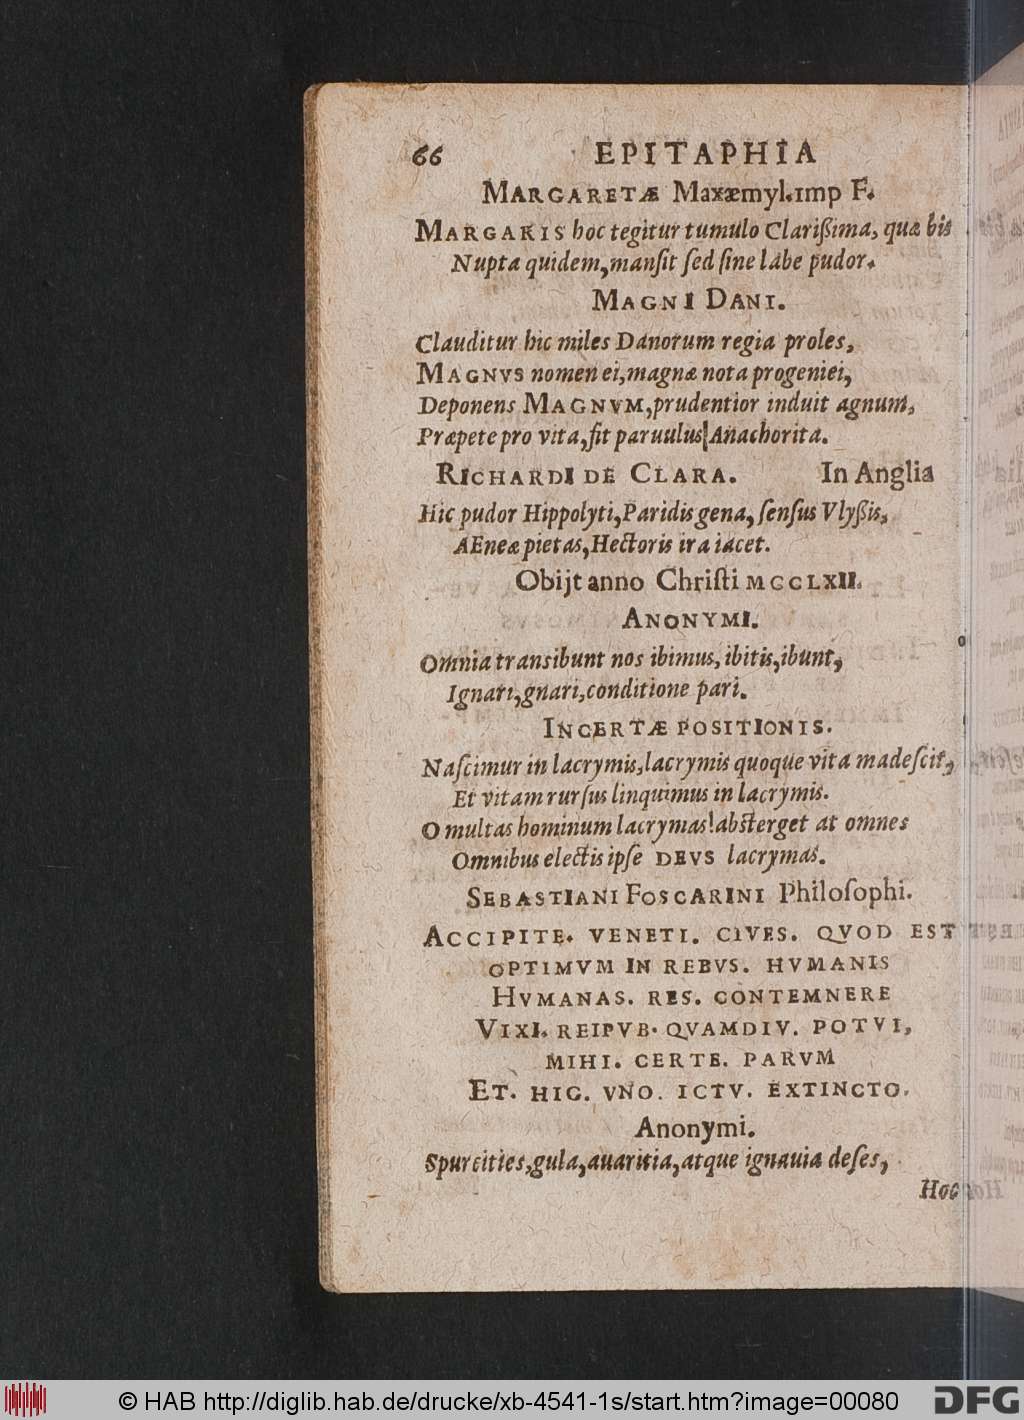 66 EPITAPHIA
MARGARETÆ Maxæmyl.imp F.
MARGARIS hoc tegitur tumulo Clarißima, quæ bis
Nupta quidem, manſit ſed ſine labe pudor.
MAGNI DANI.
Clauditur hic miles Danorum regia proles,
MAGNVS nomen ei, magnæ nota progeniei,
Deponens MAGNVM, prudentior induit agnum,
Præpete pro vita, fit paruulus Anachorita.
RICHARDI DE CLARA. In Anglia
Hic pudor Hippolyti, Paridis gena, ſenſus Vlyßis,
AEneæ pietas, Hectoris ira iacet.
Obijt anno Chriſti MCCLXII.
ANONYMI.
Omnia transibunt nos ibimus, ibitis, ibunt,
Ignari, gnari, conditione pari.
INCERTÆ POSITIONIS.
Naſcimur in lacrymis, lacrymis quoque vita madeſcit,
Et vitam rurſus linquimus in lacrymis.
O multas hominum lacrymas! abſterget at omnes
Omnibus electis ipſe DEVS lacrymas.
SEBASTIANI FOSCARINI Philoſophi.
ACCIPITE. VENETI. CIVES. QVOD EST
OPTIMVM IN REBVS. HVMANIS
HVMANAS. RES. CONTEMNERE
VIXI. REIPVB. QVAMDIV. POTVI,
MIHI. CERTE. PARVM
ET. HIC. VNO. ICTV. EXTINCTO.
Anonymi.
Spurcities, gula, auaritia, atque ignauia deſes,
Hoc
© HAB http://diglib.hab.de/drucke/xb-4541-1s/start.htm?image=00080
DFG